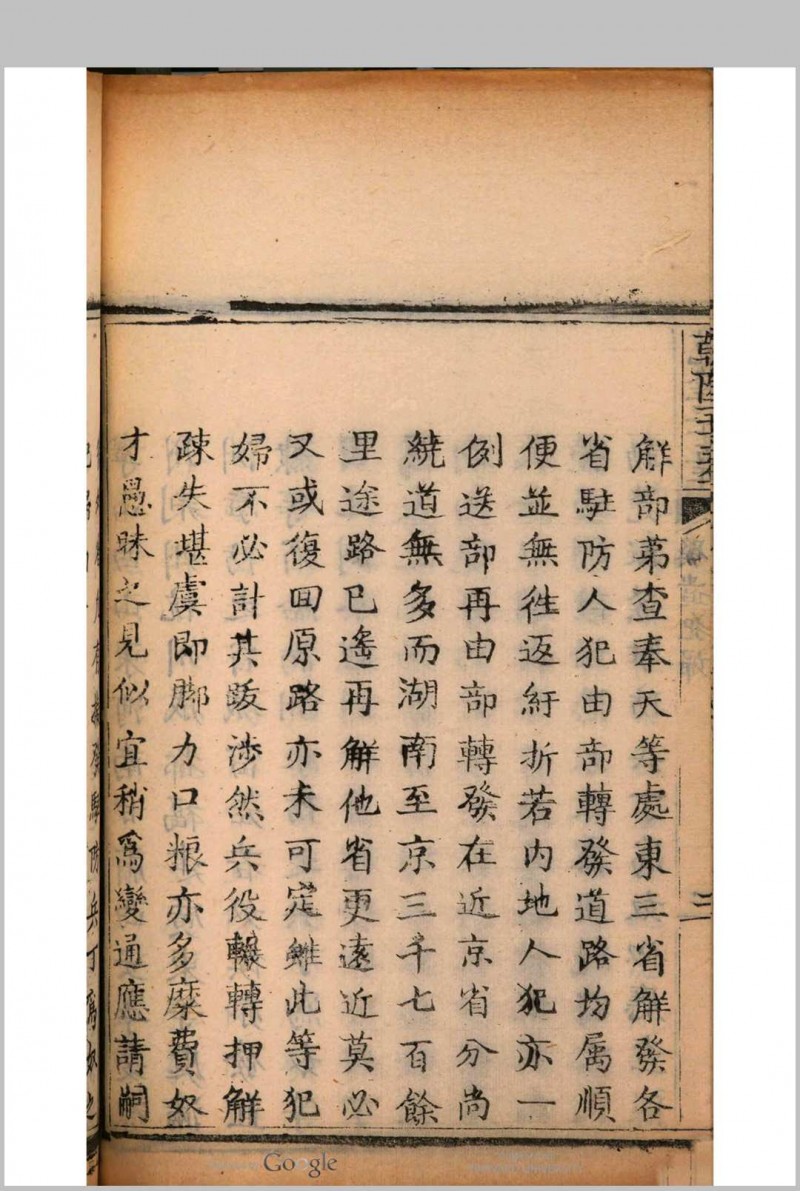 解部第查奉天等處東三省解發各
省駐防人犯由部轉發道路均属順
便並無徃返紆折若内地人犯亦一
例送部再由部轉發在近京省分尚
繞道無多而湖南至京三千七百餘
里途路已遙再解他省更遠近莫必
又或復回原路亦未可定雖此等犯
婦不必計其跋涉然兵役輾轉押解
疎失堪虞即脚力口粮亦多糜費奴
才愚昧之見似宜稍爲變通應請嗣
Google